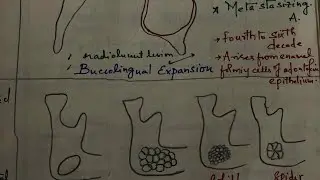 * Metastasizing
A.
→ fourth to sixth
decade
→ Arises from enamel
forming cells of odontogenic
epithelium.
✓ radiolucent lesion
✓ Buccolingual Expansion
Spider